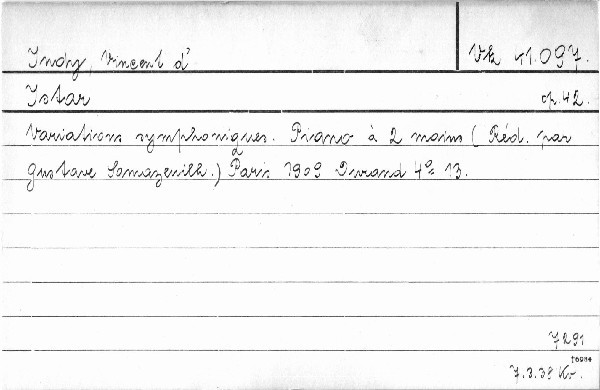 Indy, Vincent d' Vk 41.097.
Istar op. 42.
Variations symphoniques. Piano à 2 mains (Réd. par
Gustave Samazeuilh.) Paris 1909 Durand 4° 13.
7291
T6984
7.3.39 Kr.